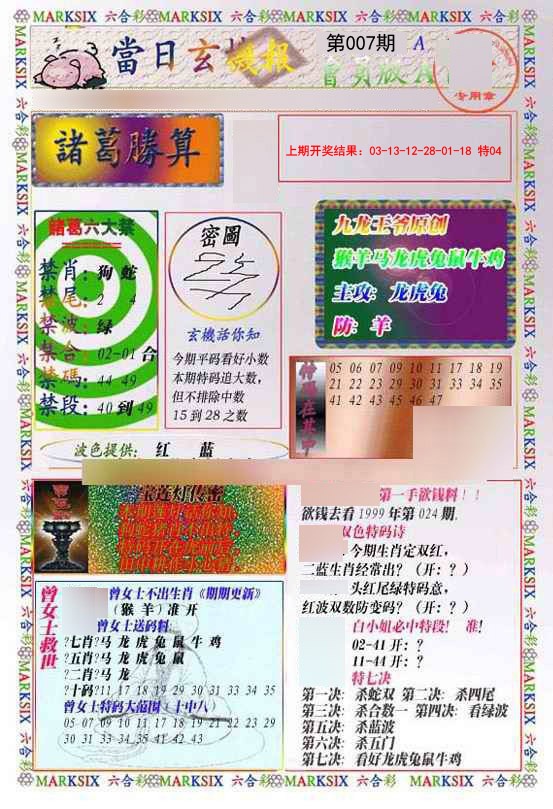 MARKSIX 六合彩 MARKSIX 六合彩 MARKSIX 六合彩 MARKSIX 六合彩
當日玄機报
第007期 A
會員版A
专用章
諸葛勝算
上期开奖结果：03-13-12-28-01-18 特04
諸葛六大禁
禁肖：狗 蛇
禁尾：2 4
禁波：绿
禁合：02-01 合
禁碼：44 49
禁段：40 到 49
密圖
玄機話你知
今期平码看好小数
本期特码追大数，
但不排除中数
15 到 28 之数
九龙王爷原创
猴羊马龙虎兔鼠牛鸡
主攻：龙虎兔
防：羊
05 06 07 09 10 11 17 18 19
21 22 23 29 30 31 33 34 35
41 42 43 45 46 47
波色提供： 红 蓝
第一手欲钱料！！
欲钱去看 1999 年第 024 期.
双色特码诗
今期生肖定双红，
二蓝生肖经常出？（开：？）
头红尾绿特码意，
红波双数防变码？（开：？）
白小姐必中特段！ 准！
02-41 开：？
11-44 开：？
特七决
第一决：杀蛇双 第二决：杀四尾
第三决：杀合数一 第四决：看绿波
第五决：杀蓝波
第六决：杀五门
第七决：看好龙虎兔鼠牛鸡
曾女士救世
曾女士不出生肖《期期更新》
（猴 羊）准 开
曾女士送码料
?七肖?马 龙 虎 兔 鼠 牛 鸡
?五肖?马 龙 虎 兔 鼠
?二肖?马 龙
?十码?11 17 18 19 29 30 31 33 34 35
曾女士特码大范围（十中八）
05 07 09 10 11 17 18 19 21 22 23 29
30 31 33 34 35 41 42 43
MARKSIX 六合彩 MARKSIX 六合彩 MARKSIX 六合彩 MARKSIX 六合彩